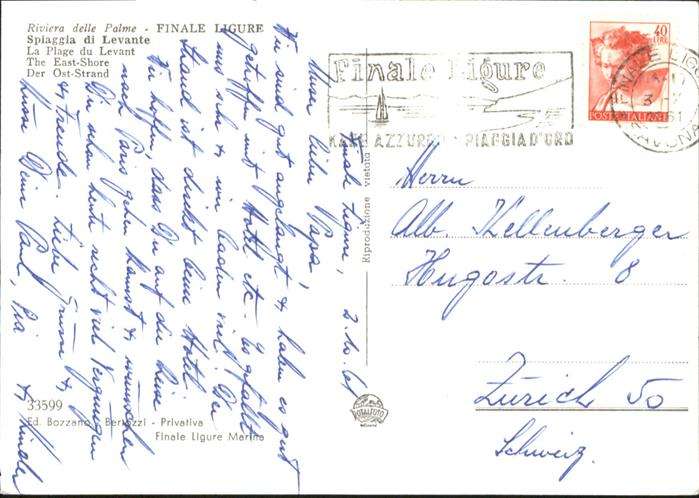 Riviera delle Palme - FINALE LIGURE
Spiaggia di Levante
La Plage du Levant
The East-Shore
Der Ost-Strand
Finale Ligure, 2.10.61
Mein lieber Papa,
Wir sind gut angelangt & haben es gut
getroffen mit Hotel etc. Es gefällt
uns sehr & wir baden viel. Der
Strand ist direkt beim Hotel.
Wir hoffen, dass Du auf die Reise
nach Paris gehen kannst & wünschen
Dir schon heute recht viel Vergnügen
& Freude. Liebe Grüsse &
Küsse Dein Paul, Pia & Kinder
33599
Ed. Bozzano - Bertozzi - Privativa
Finale Ligure Marina
Riproduzione vietata
Finale Ligure
MARE AZZURRO - SPIAGGIA D'ORO
40
LIRE
POSTE ITALIANE
FINALE LIGURE
Herrn
Alb. Kellenberger
Hugostr. 8
Zürich 50
Schweiz.